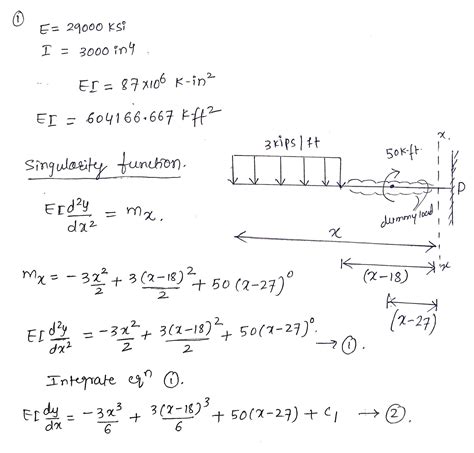 ①
E = 29000 KSi
I = 3000 in4
EI = 87x10⁶ K-in²
EI = 604166.667 K-ft²
Singularity function.
EI d²y/dx² = mx.
3 kips/ft
50K-ft
x.
D
dummy load
x
x
(x-18)
(x-27)
mx = -3x²/2 + 3(x-18)²/2 + 50(x-27)⁰
EI d²y/dx² = -3x²/2 + 3(x-18)²/2 + 50(x-27)⁰. → ①.
Integrate eqⁿ ①.
EI dy/dx = -3x³/6 + 3(x-18)³/6 + 50(x-27) + C₁ → ②.